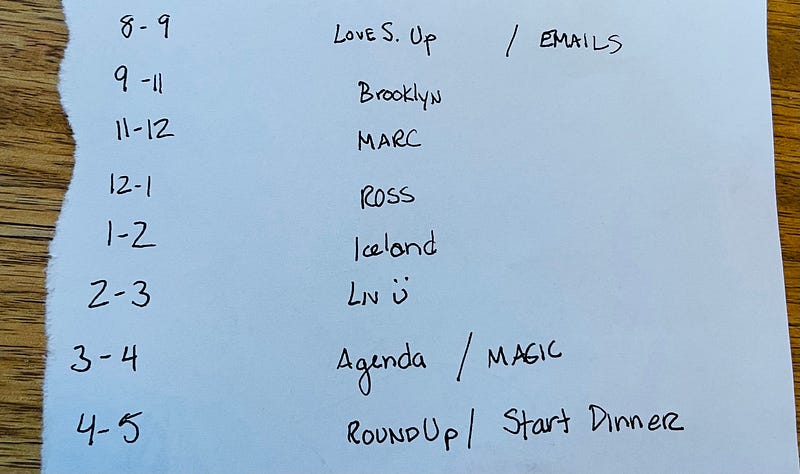 8-9 LOVE S. Up / EMAILS
9-11 Brooklyn
11-12 MARC
12-1 ROSS
1-2 Iceland
2-3 LIV Ü
3-4 Agenda / MAGIC
4-5 ROUNDUp / Start Dinner